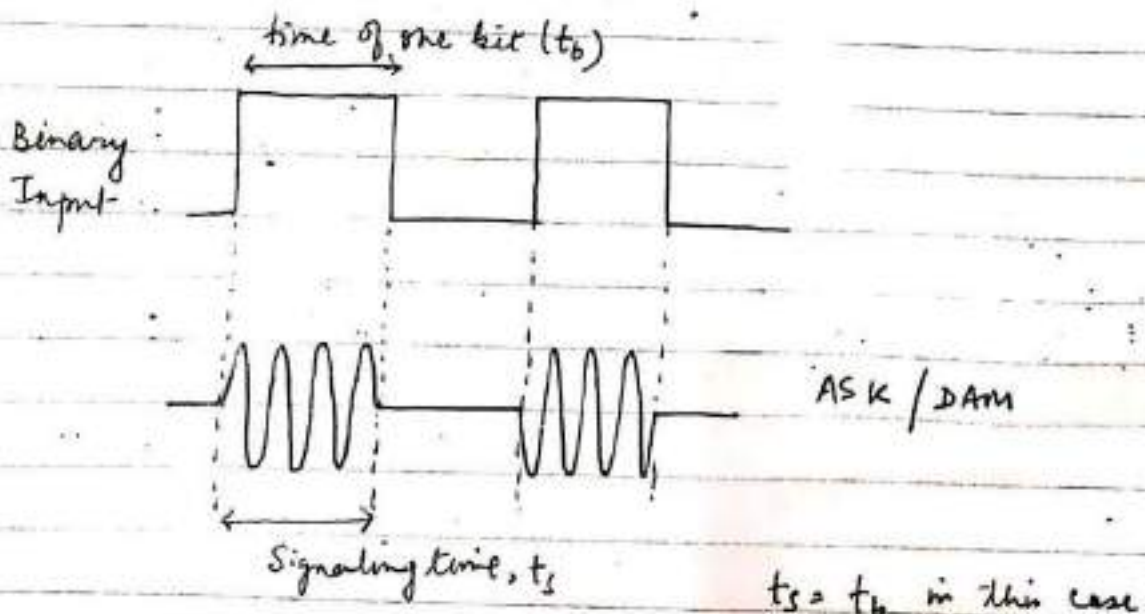 time of one bit (t_b)
Binary
Input
ASK / DAM
Signaling time, t_s
t_s = t_b in this case